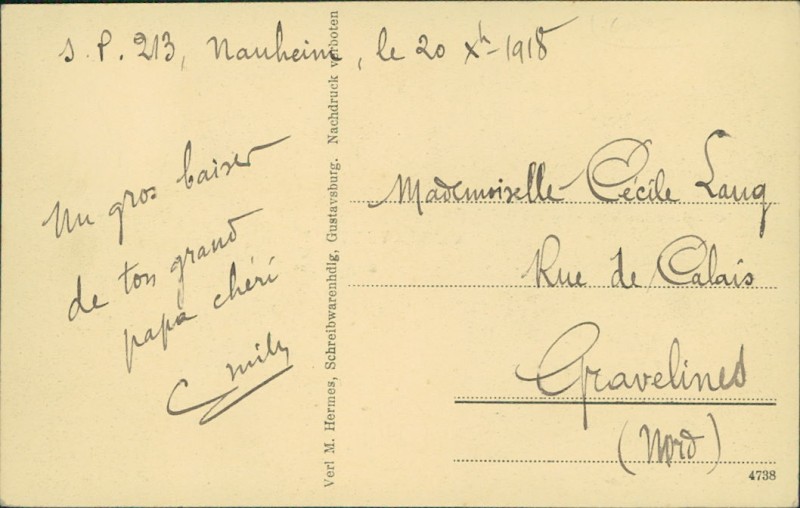 S. P. 213, Nauheim, le 20 Xb-1918
Un gros baiser
de ton grand
papa chéri
Emily
Verl M. Hermes, Schreibwarenhdlg, Gustavsburg. Nachdruck verboten
Mademoiselle Cécile Lang
Rue de Calais
Gravelines
(Nord)
4738